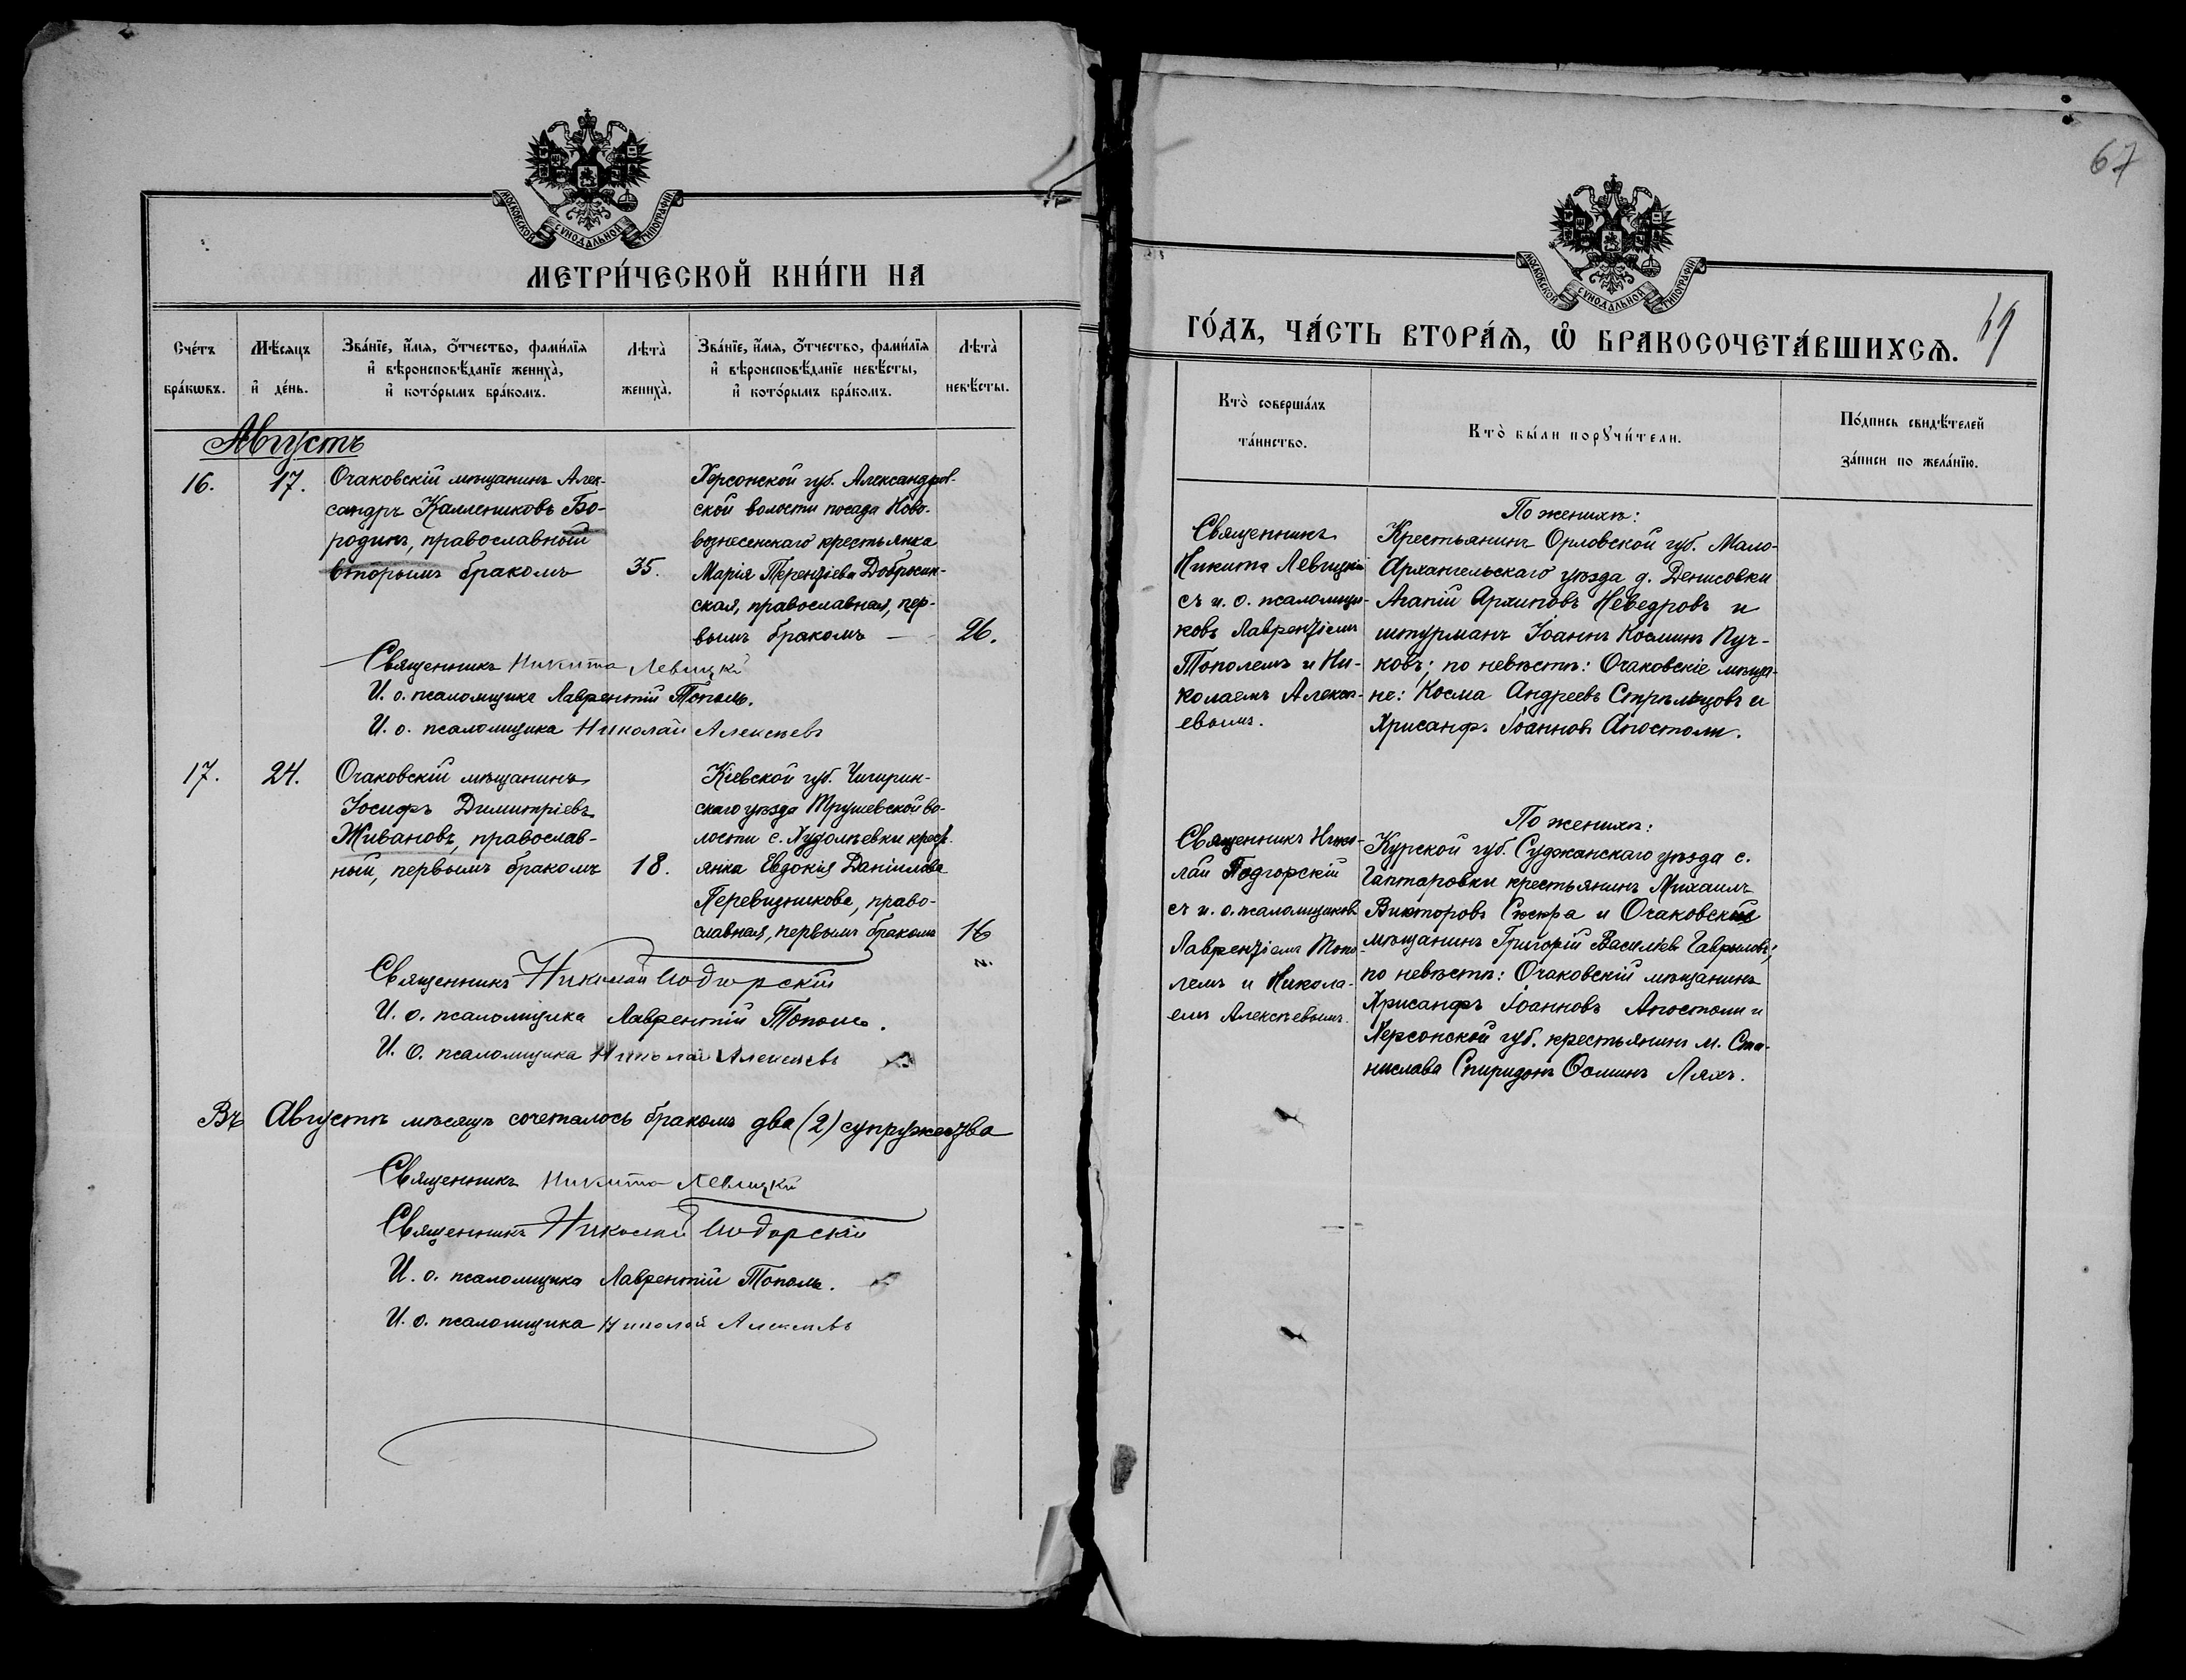 МОСКОВСКОЙ СУНОДАЛЬНОЙ ТИПОГРАФІИ
МЕТРИ́ЧЕСКОЙ КНИ́ГИ НА
Сче́тъ бра́кѡвъ.
Мѣ́сяцъ и҆ де́нь.
Зва́нїе, и҆́мя, ѻ҆́тчество, фами́лїя
и҆ вѣроисповѣ́данїе жениха̀,
и҆ кото́рымъ бра́комъ.
Лѣта̀ жениха̀.
Зва́нїе, и҆́мя, ѻ҆́тчество, фами́лїя
и҆ вѣроисповѣ́данїе невѣ́сты,
и҆ кото́рымъ бра́комъ.
Лѣта̀ невѣ́сты.
Августъ
16.
17.
Очаковскій мѣщанинъ Алек-
сандръ Каллениковъ Бо-
родинъ, православный
вторымъ бракомъ
35.
Херсонской губ. Александров-
ской волости посада Ново-
вознесенскаго крестьянка
Марія Терентіева Добросин-
ская, православная, пер-
вымъ бракомъ —
26.
Священникъ Никита Левицкій
И. о. псаломщика Лаврентій Тополь.
И. о. псаломщика Николай Алексѣевъ
17.
24.
Очаковскій мѣщанинъ
Іосифъ Димитріевъ
Живановъ, православ-
ный, первымъ бракомъ
18.
Кіевской губ. Чигирин-
скаго уѣзда Трушевской во-
лости с. Худолѣевки крест-
янка Евдокія Даніилова
Перевизникова, право-
славная, первымъ бракомъ
16
Священникъ Николай Подгорскій
И. о. псаломщика Лаврентій Тополь.
И. о. псаломщика Николай Алексѣевъ
Въ Августѣ мѣсяцѣ сочеталось бракомъ два (2) супружества
Священникъ Никита Левицкій
Священникъ Николай Подгорскій
И. о. псаломщика Лаврентій Тополь.
И. о. псаломщика Николай Алексѣевъ
67
МОСКОВСКОЙ СУНОДАЛЬНОЙ ТИПОГРАФІИ
ГО́ДЪ, ЧА́СТЬ ВТОРА́Я, Ѡ҆ БРАКОСОЧЕТА́ВШИХСЯ.
Кто̀ соверша́лъ та́инство.
Кто̀ бы́ли порꙋчи́тели.
По́дпись свидѣ́телей за́писи по жела́нїю.
Священникъ
Никита Левицкій
съ и. о. псаломщи-
ковъ Лаврентіемъ
Тополемъ и Ни-
колаемъ Алексѣ-
евымъ.
По женихѣ:
Крестьянинъ Орловской губ. Мало-
Архангельскаго уѣзда д. Денисовки
Агапій Архиповъ Неведровъ и
штурманъ Іоаннъ Косминъ Пуч-
ковъ; по невѣстѣ: Очаковскіе мѣща-
не: Косма Андреевъ Стрѣльцовъ и
Хрисанфъ Іоанновъ Апостоли.
Священникъ Нико-
лай Подгорскій
съ и. о. псаломщиковъ
Лаврентіемъ Топо-
лемъ и Никола-
емъ Алексѣевымъ.
По женихѣ:
Курской губ. Суджанскаго уѣзда с.
Гаптаровки крестьянинъ Михаилъ
Викторовъ Сюкра и Очаковскій
мѣщанинъ Григорій Василіевъ Гавриловъ;
по невѣстѣ: Очаковскій мѣщанинъ
Хрисанфъ Іоанновъ Апостоли и
Херсонской губ. крестьянинъ м. Ста-
нислава Спиридонъ Ѳоминъ Ляхъ.